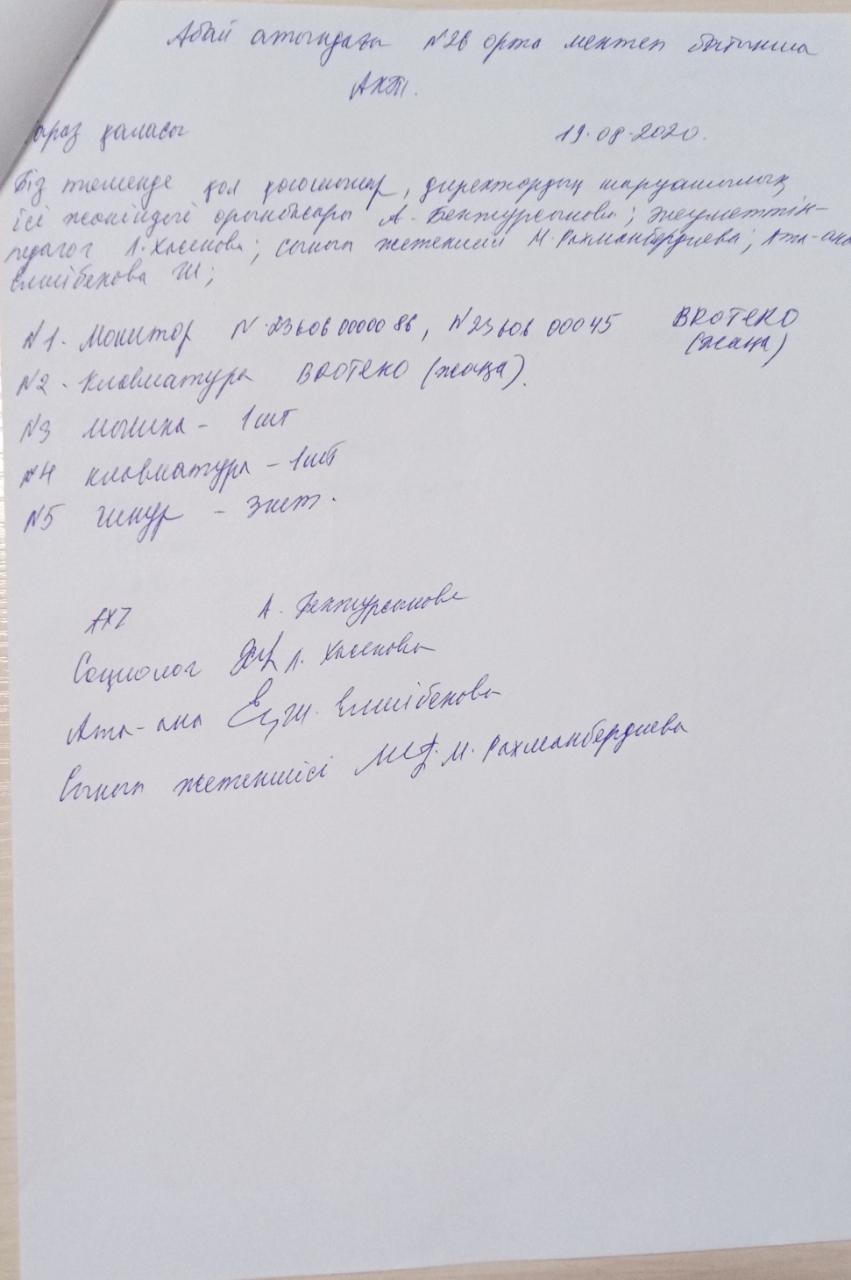 Абай атындағы №26 орта мектеп бойынша
Акт.
араз қаласы 19.08.2020.
Біз төменде қол қоюшылар, директордың шаруашылық
ісі жөніндегі орынбасары А. Бектурсынова; әлеуметтік-
педагог Л. Хасенова; сынып жетекшісі М. Рахманбердиева; Ата-ана
Елшібекова Ш;
№1. Монитор №23606000086, №2360600045 BROTEKO
(жаңа)
№2. Клавиатура BROTEKO (жаңа).
№3 мышка - 1шт
№4 клавиатура - 1шт
№5 шнур - 3шт.
АХЧ А. Бектурсынова
Социолог Л. Хасенова
Ата-ана Ш. Елшібекова
Сынып жетекшісі М. Рахманбердиева